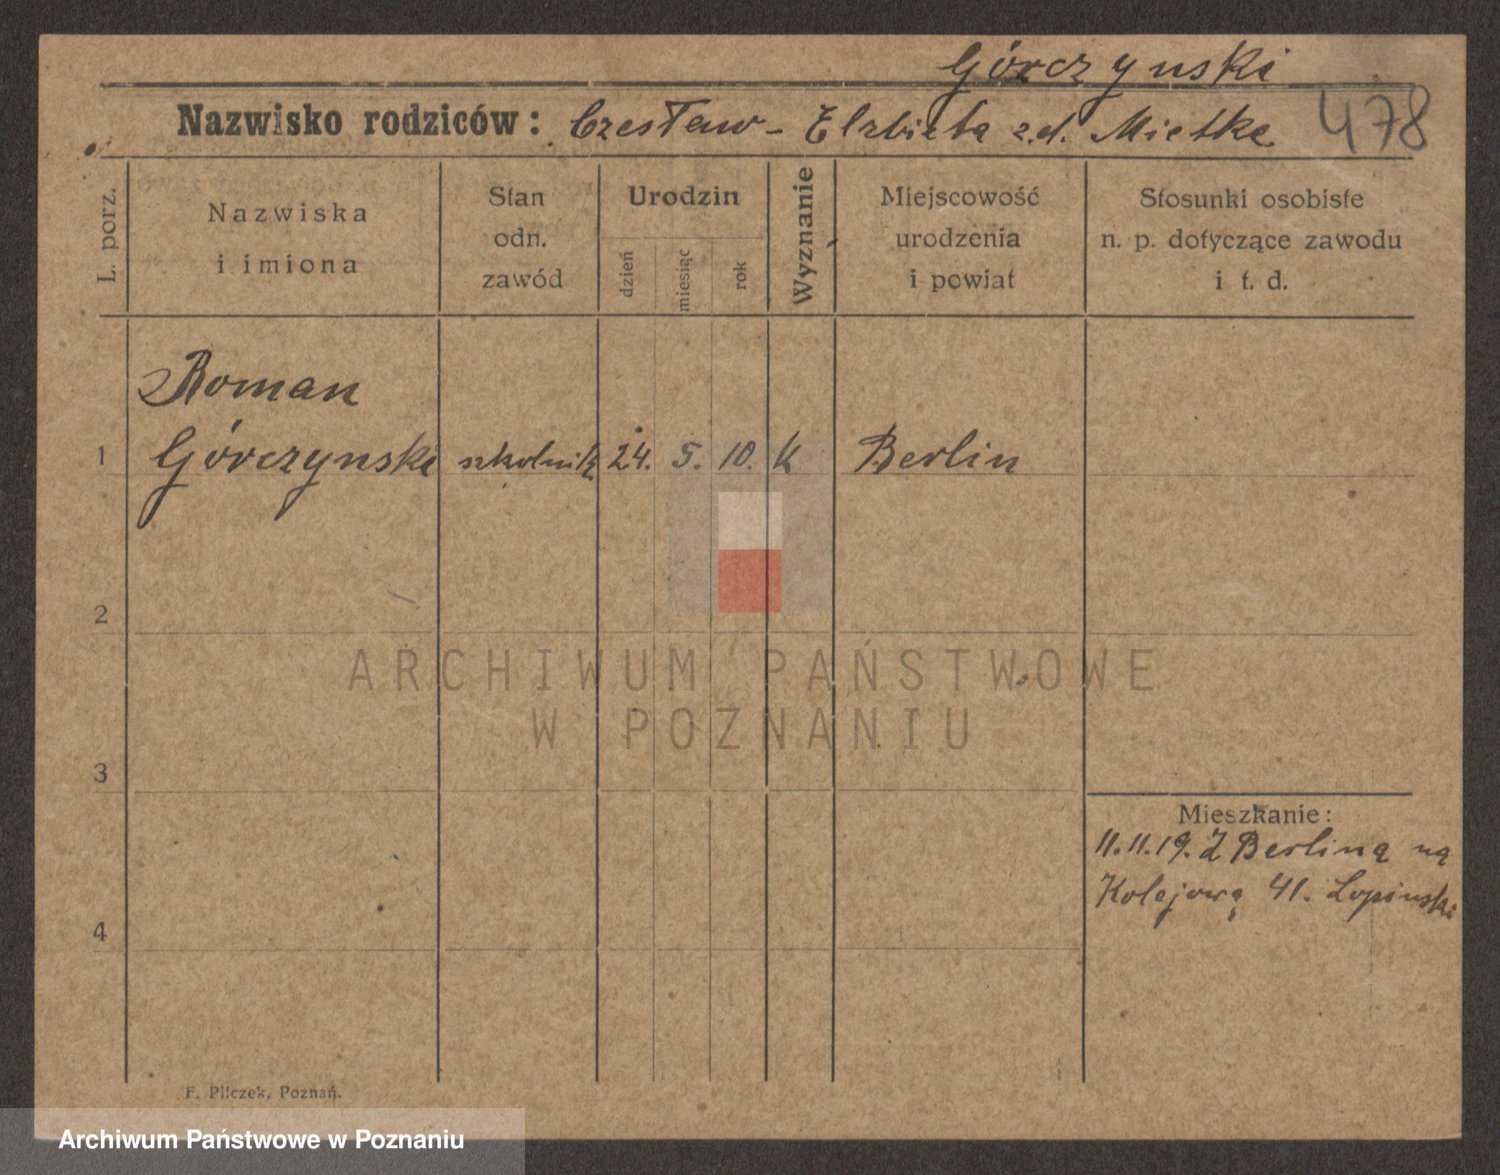 Górczynski
Nazwisko rodziców: Czesław - Elzbieta z.d. Mietke
478
L. porz.
Nazwiska
i imiona
Stan
odn.
zawód
Urodzin
dzień
miesiąc
rok
Wyznanie
Miejscowość
urodzenia
i powiat
Stosunki osobiste
n. p. dotyczące zawodu
i t. d.
Roman
1 Górczynski szkolnik 24. 5. 10. K Berlin
2
ARCHIWUM PAŃSTWOWE
W POZNANIU
3
Mieszkanie:
11.11.19. Z Berlina na
Kolejową 41. Lopinski
4
F. Pilczek, Poznań.
Archiwum Państwowe w Poznaniu